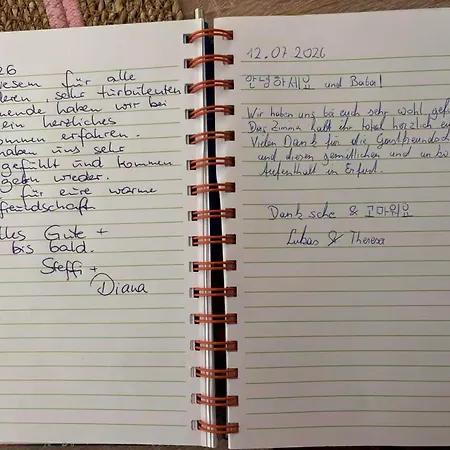 26
esem für alle
deren, sehr turbulenten
ende haben wir bei
ein herzliches
ommen erfahren.
haben uns sehr
gefühlt und kommen
gern wieder.
für eure warme
freundschaft
lles Gute +
bis bald.
Steffi +
Diana
12.07.2026
안녕하세요 und Baba!
Wir haben uns bei euch sehr wohl gef
Das Zimmer habt ihr total herzlich ei
Vielen Dank für die Gastfreundsch
und diesen gemütlichen und
Aufenthalt in Erfurt.
Dank sche & 고마워요
Lukas & Theresa